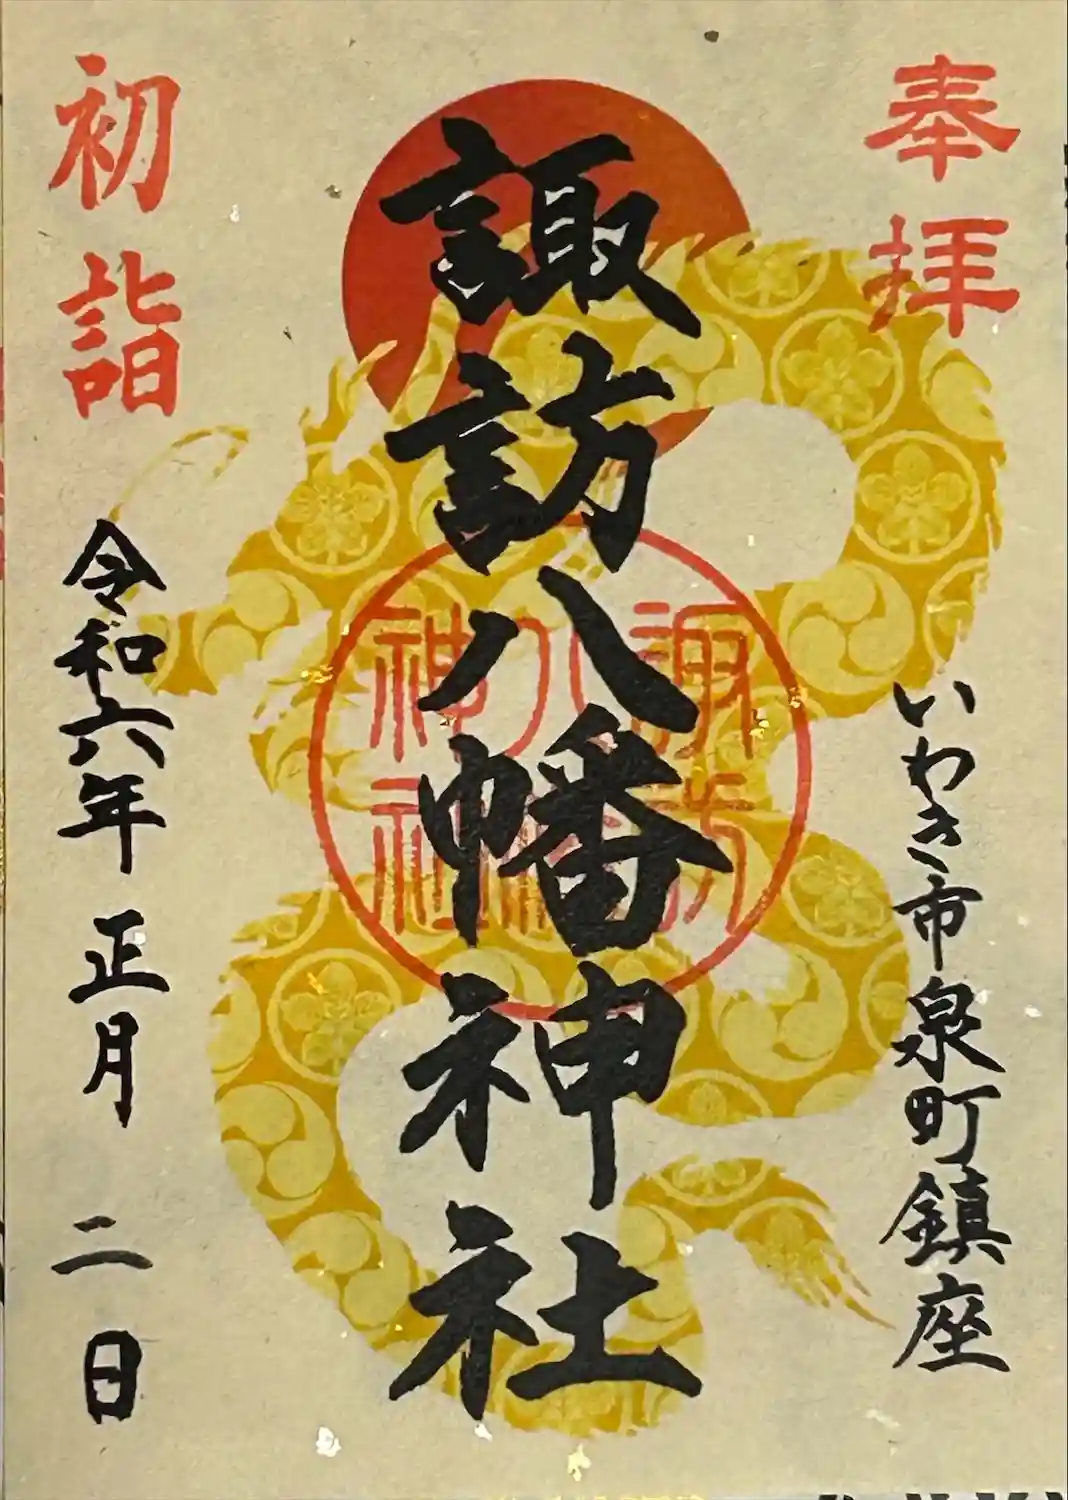 奉拝
いわき市泉町鎮座
諏訪八幡神社
諏訪
八幡
神社
初詣
令和六年 正月 二日